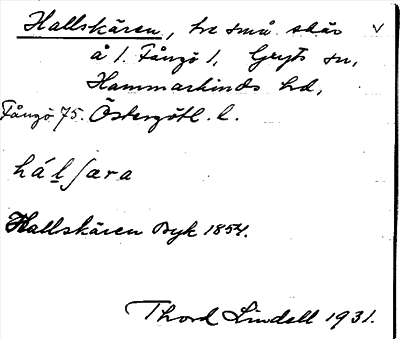 Hallskären, tre små skär v
å l. Fångö l, Gryts sn,
Hammarkinds hd,
Fångö 75. Östergötl. l.
hálʃæra
Hallskären Byk 1854.
Thord Lindell 1931.